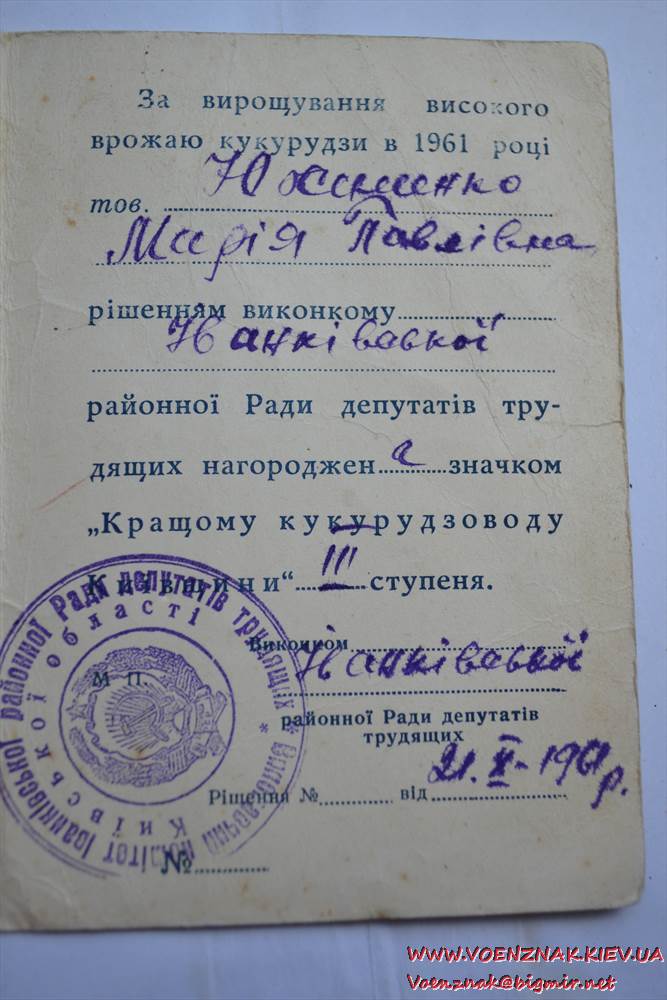 За вирощування високого
врожаю кукурудзи в 1961 році
Юхименко
тов.
Марія Павлівна
рішенням виконкому
Іванківської
районної Ради депутатів тру-
дящих нагороджен а значком
„Кращому кукурудзоводу
Київщини“ III ступеня.
Виконком
Іванківської
М П.
районної Ради депутатів
трудящих
21. X - 1961 р.
Рішення № від
№
Виконавчий комітет Іванківської районної Ради депутатів трудящих *
Київської області
WWW.VOENZNAK.KIEV.UA
Voenznak@bigmir.net